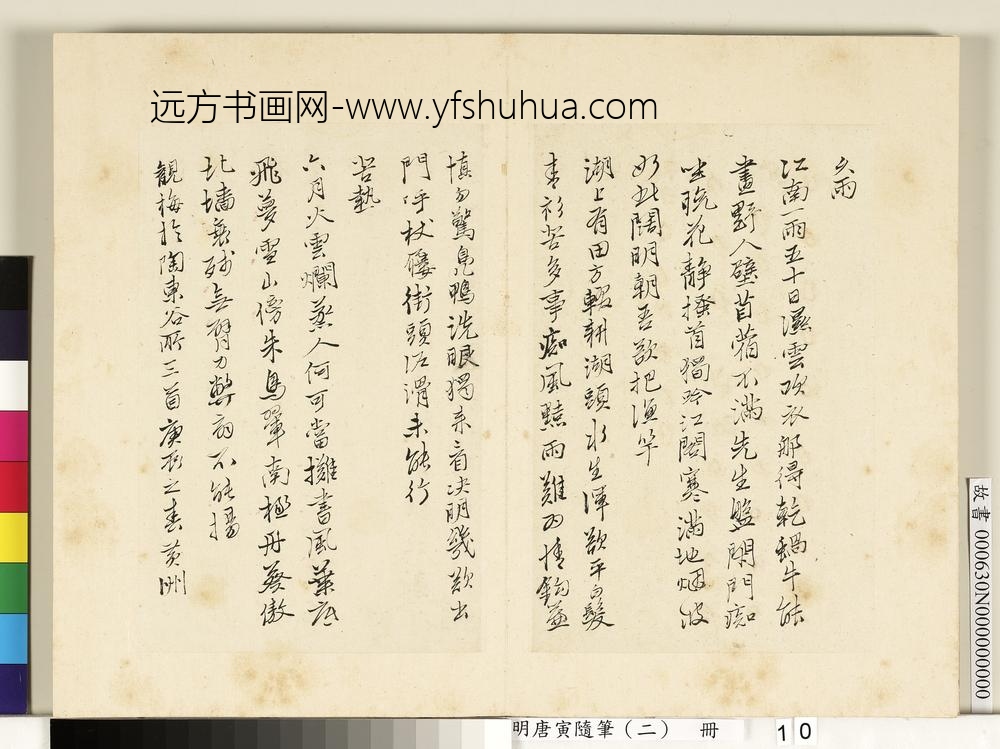 远方书画网-www.yfshuhua.com
久雨
江南一雨五十日濕雲吹衣那得乾蝸牛能
畫野人壁苜蓿不滿先生盤閉門痴
坐晚花靜搔首獨吟江閣寒滿地烟波
如此闊明朝吾欲把漁竿
湖上有田方輟耕湖頭水生渾欲平白髮
青衫苦多事痴風黠雨難為情鈎簾
慎勿驚鳧鴨洗眼猶來看决明幾欲出
門呼杖屨街頭泥滑未能行
苦熱
六月火雲爛蒸人何可當攤書風葉
飛夢雪山傍朱鳥翬南極丹葵傲
北墻衰殘無臂力弊扇不能揚
觀梅於陶東谷所三首庚辰之春黃州
故書 000630N000000000
明唐寅隨筆（二） 冊
10